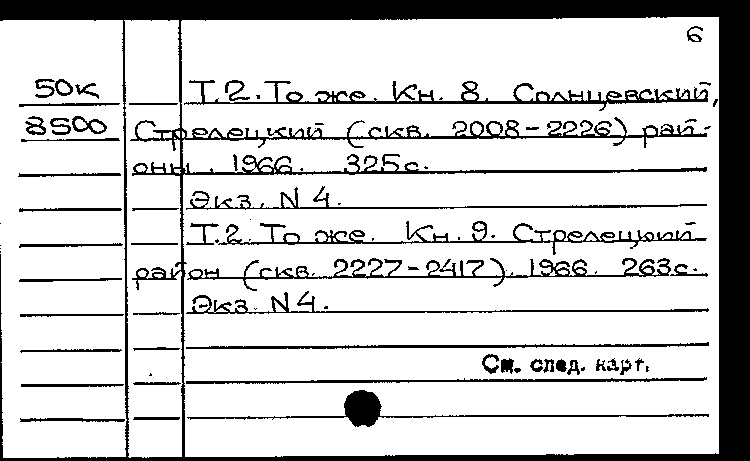 6
50к Т.2. То же. Кн. 8. Солнцевский,
8500 Стрелецкий (скв. 2008-2226) рай-
оны. 1966. 325с.
Экз. N 4.
Т.2. То же. Кн. 9. Стрелецкий
район (скв. 2227-2417). 1966. 263с.
Экз. N 4.
См. след. карт.